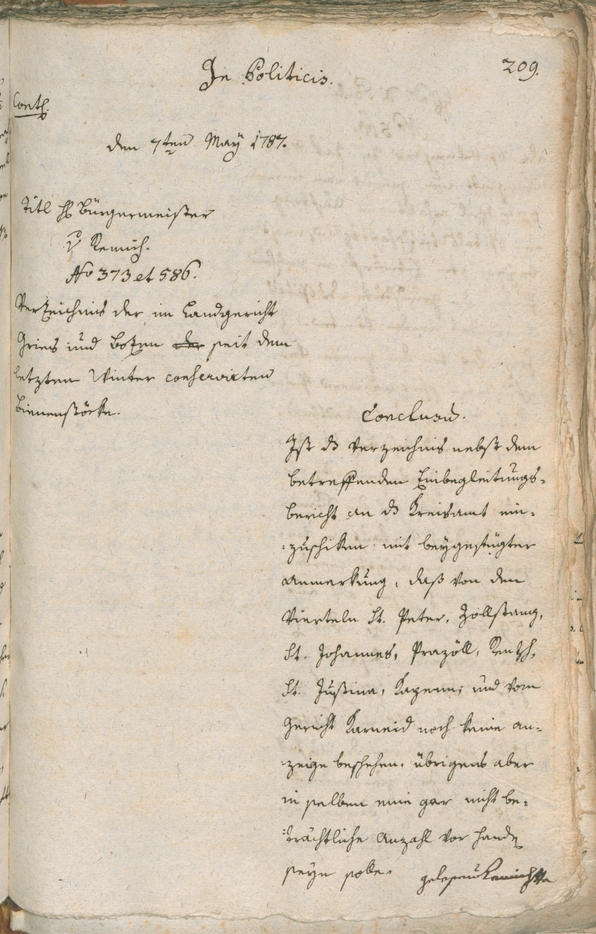 In Politicis.
209.
den 7ten May 1787.
Titl H Bürgermeister
v Remich.
No 373 et 586.
Verzeichnis der im Landgericht
Gries und Bozen der seit dem
letzten Winter conservirten
Bienenstöcke.
Conclusum.
Ist ds Verzeichnis nebst dem
betreffenden Einbegleitungs-
bericht an ds Kreisamt ein-
zuschiken mit beygefügter
Anmerkung, daß von den
Vierteln St. Peter, Zollstang,
St. Johannes, Prazöll, Rentsch,
St. Justina, Kapenn, und vom
Gericht Karneid noch keine an-
zeige beschehen, übrigens aber
in selben eine gar nicht be-
trächtliche Anzahl vor handen
seyn solle. gelesen